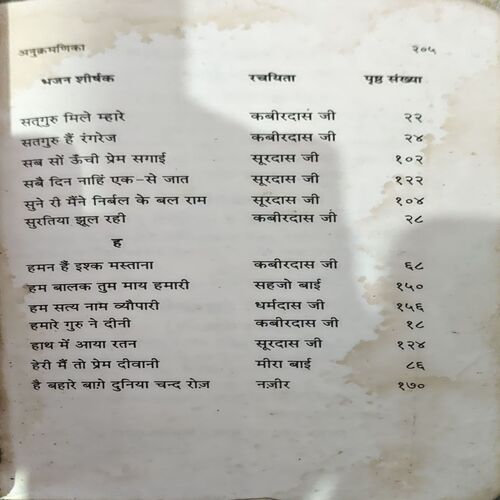 अनुक्रमणिका २०५
भजन शीर्षक रचयिता पृष्ठ संख्या
सत्गुरु मिले म्हारे कबीरदास जी २२
सतगुरु हैं रंगरेज कबीरदास जी २४
सब सों ऊँची प्रेम सगाई सूरदास जी १०२
सबै दिन नाहिं एक-से जात सूरदास जी १२२
सुने री मैंने निर्बल के बल राम सूरदास जी १०४
सुरतिया झूल रही कबीरदास जी २८
ह
हमन हैं इश्क मस्ताना कबीरदास जी ६८
हम बालक तुम माय हमारी सहजो बाई १५०
हम सत्य नाम व्यौपारी धर्मदास जी १५६
हमारे गुरु ने दीनी कबीरदास जी १८
हाथ में आया रतन सूरदास जी १२४
हेरी मैं तो प्रेम दीवानी मीरा बाई ८६
है बहारे बाग़े दुनिया चन्द रोज़ नज़ीर १७०